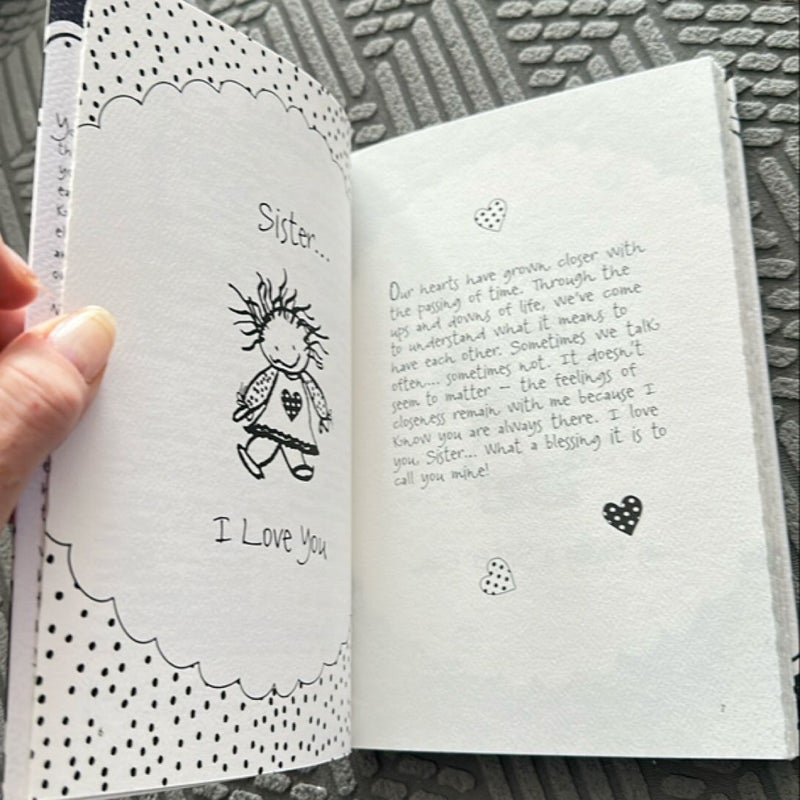 Sister...
I Love You
Our hearts have grown closer with
the passing of time. Through the
ups and downs of life, we've come
to understand what it means to
have each other. Sometimes we talk
often... sometimes not. It doesn't
seem to matter – the feelings of
closeness remain with me because I
know you are always there. I love
you, Sister... What a blessing it is to
call you mine!
7